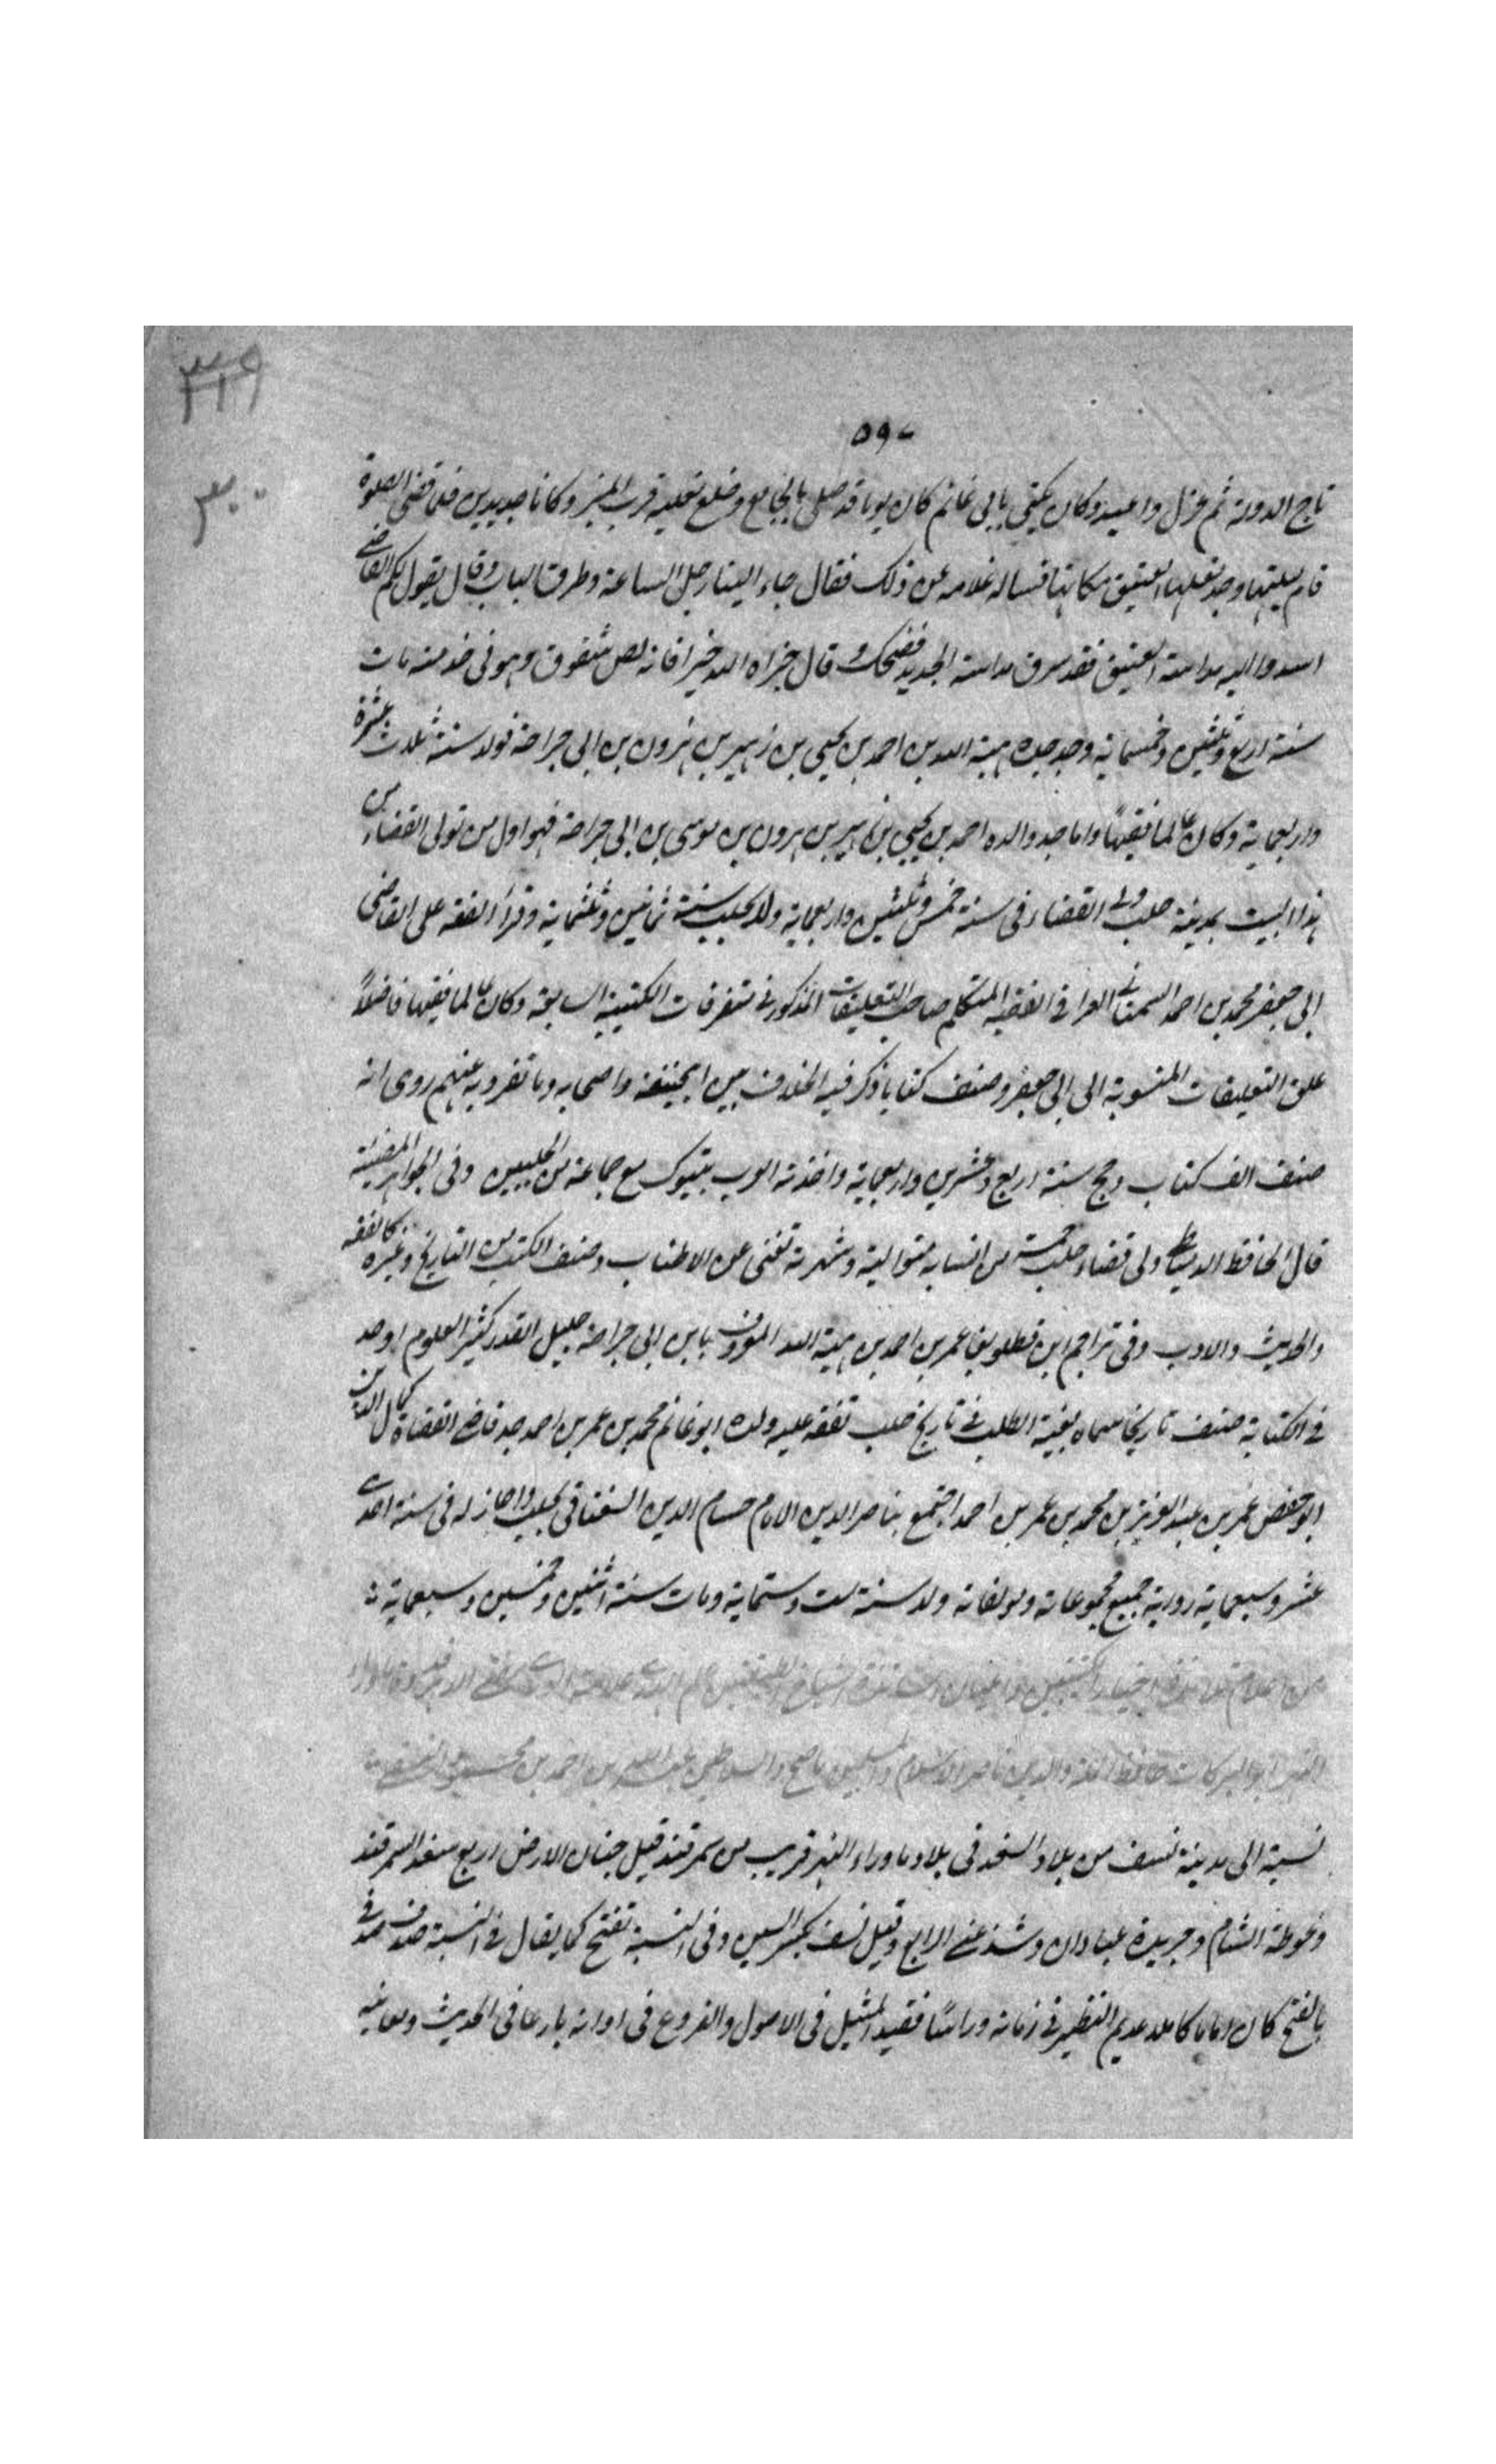 ٣١٩
٥٩٧
٣٠
تاج الدولة ثم عزل واعيد وكان يكنى بابى غانم كان يوما قد صلى بالجامع وخلع نعليه قرب المنبر وكانا جديدين فلما قضى الصلوة
قام يلبسهما وجد نعليه العتيق مكانهما فسأله غلامه عن ذلك فقال جاء الينا رجل الساعة وطرق الباب وقال يقول لكم القاضى
اسدوا اليه مداسه العتيق فقد سرق مداسه الجديد فضحك وقال جزاه الله خيرا فانه لص شفوق وهو فى مات
سنة اربع وثلثين وخمسماية وجد جده هبة الله بن احمد بن يحيى بن زهير بن هرون بن ابى جرادة فولد سنة ثلث عشرة
واربعماية وكان عالما فقيها واما جد والده احمد بن يحيى بن زهير بن هرون بن موسى بن ابى جرادة فهو اول من تولى القضاء من
هذا البيت بمدينة حلب ولى القضاء فى سنة خمس وثلثين واربعماية ولد بحلب سنة ثمانين وثلثماية وقرأ الفقه على القاضى
ابى جعفر محمد بن احمد السمنانى العراقى الفقيه المتكلم صاحب التعليقات المذكور فى متفرقات الكتيبة السابقة وكان عالما فقيها فاضلاً
علق التعليقات المنسوبة الى ابى جعفر وصنف كتابا ذكر فيه الخلاف بين ابيحنيفة واصحابه وما تفرد به عنهم روى انه
صنف الف كتاب وحج سنة اربع وعشرين واربعماية واخذته العرب بتبوك مع جماعة من الحلبيين وفى الجواهر المضيئة
قال الحافظ الدمياطى ولى قضاء حلب خمسة من انسابه متوالية وشهرته تغنى عن الاطناب وصنف الكتب من التاريخ وغيره كالفقه
والحديث والادب وفى تراجم ابن قطلوبغا عمر بن احمد بن هبة الله المعروف بابن ابى جرادة جليل القدر كثير العلوم اوحد
فى الكتابة صنف تاريخا سماه بغية الطلب فى تاريخ حلب تفقه عليه ولده ابو غانم محمد بن عمر بن احمد جد قاضى القضاة كمال الدين
ابو حفص عمر بن عبد العزيز بن محمد بن عمر بن احمد اجتمع بناصر الدين الامام حسام الدين السغناقى بحلب واجاز له فى سنة احدى
عشر وسبعماية رواية جميع مجموعاته ومولفاته ولد سنة ست وستماية ومات سنة اثنين وخمسين وسبعماية
ابو البركات حافظ الملة والدين ناصر الاسلام والمسلمين ناصح السلاطين عبد الله بن احمد بن محمود النسفى
نسبة الى مدينة نسف من بلاد السغد فى بلاد ما وراء النهر قريب من سمرقند قيل جنان الارض اربع سغد السمرقند
وغوطة الشام وجزيرة عبادان وشذ عنى الرابع وقيل نسف بكسر السين وفى النسبة تفتح كما يقال فى النسبة صدفى فى
بالفتح كان اماما كاملا عديم النظير فى زمانه وراسًا فقيد المثيل فى الاصول والفروع فى اوانه بارعا فى الحديث ومعانيه